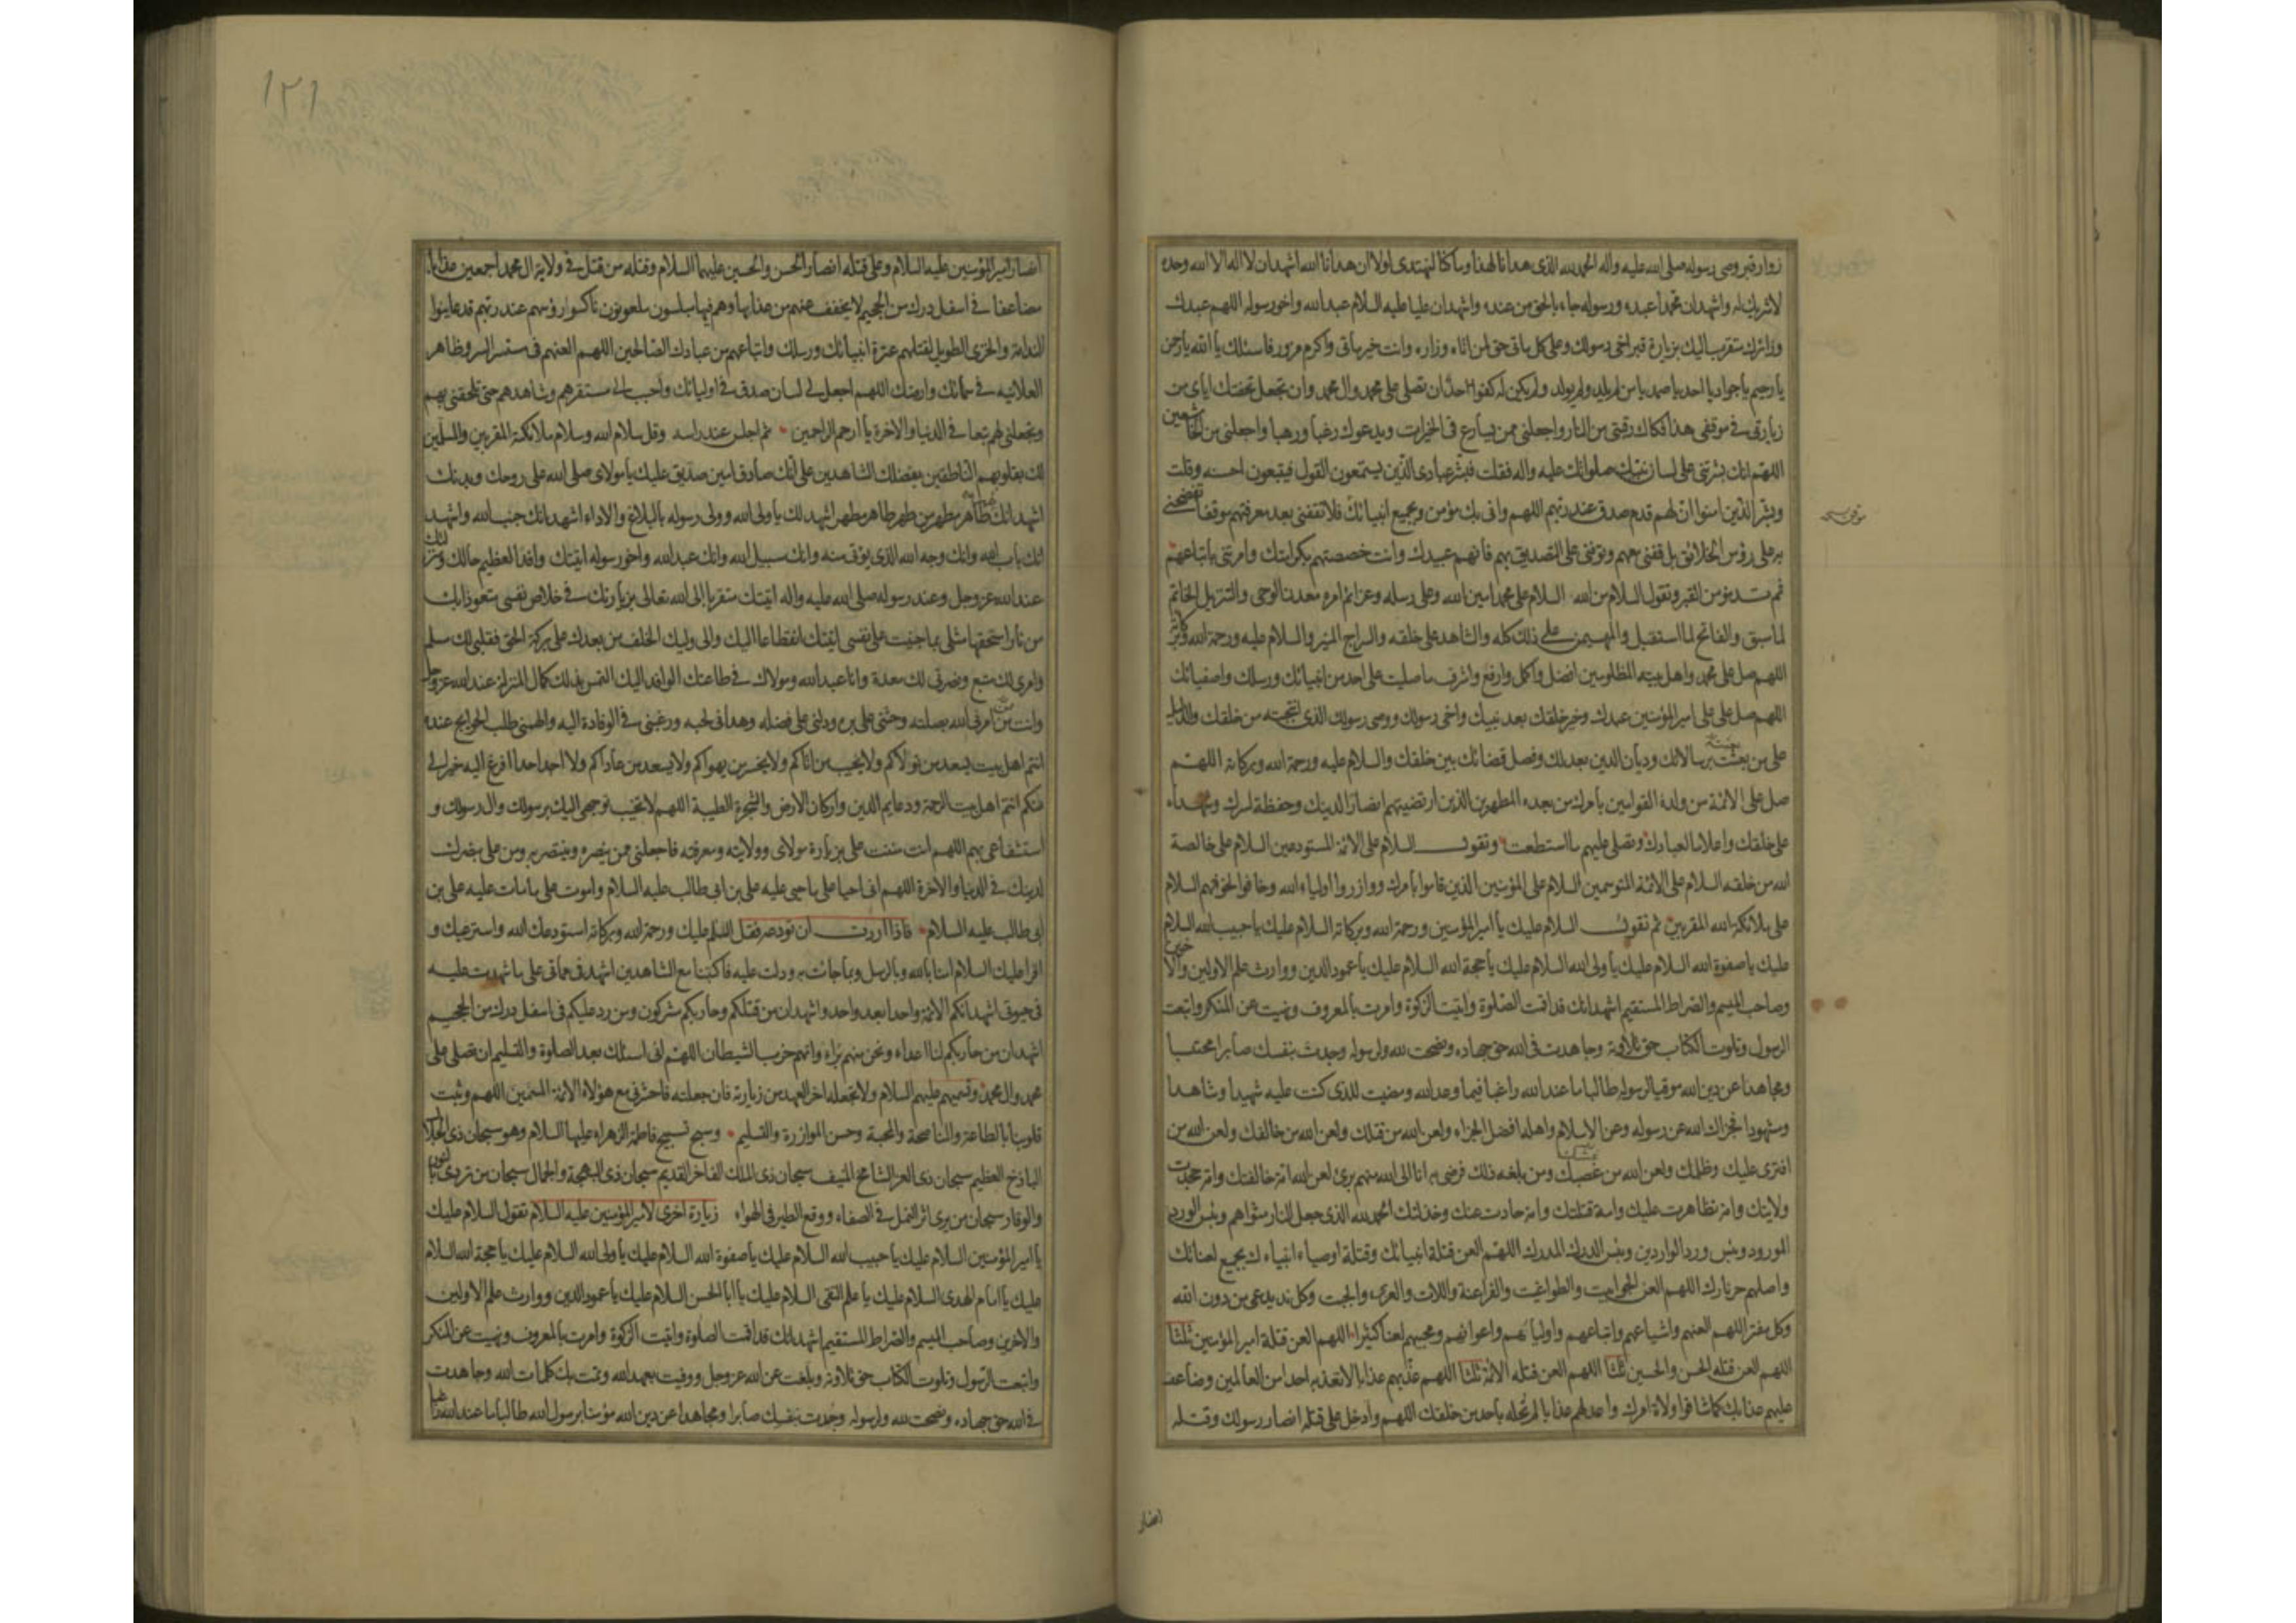 زوار قبر وصى رسوله صلى الله عليه واله الحمد لله الذى هدانا لهذا وما كنا لنهتدى لولا ان هدانا الله اشهد ان لا اله الا الله وحده
لا شريك له واشهد ان محمدا عبده ورسوله جاء بالحق من عنده واشهد ان عليا عليه السلام عبد الله واخو رسوله اللهم عبدك
وزائرك متقرب اليك بزيارة قبر اخى رسولك وعلى كل ماتى حق لمن اتاه وزاره وانت خير ماتى واكرم مزور فاسئلك يا الله يا رحمن
يا رحيم يا جواد يا احد يا صمد يا من لم يلد ولم يولد ولم يكن له كفوا احد ان تصلى على محمد وال محمد وان تجعل تحفتك اياى من
زيارتى فى موقفى هذا فكاك رقبتى من النار واجعلنى ممن يسارع فى الخيرات ويدعوك رغبا ورهبا واجعلنى من الخاشعين
اللهم انك بشرتنى على لسان نبيك صلواتك عليه واله فقلت فبشر عبادى الذين يستمعون القول فيتبعون احسنه وقلت
وبشر الذين امنوا ان لهم قدم صدق عند ربهم اللهم وانى بك مؤمن وبجميع انبيائك فلا تقفنى بعد معرفتهم موقفا تفضحنى
به على رؤس الخلائق بل قفنى معهم وتوفنى على التصديق بهم فانهم عبيدك وانت خصصتهم بكرامتك وامرتنى باتباعهم
ثم تدنو من القبر وتقول السلام من الله السلام على محمد امين الله وعلى رسله وعزائم امره معدن الوحى والتنزيل الخاتم
لما سبق والفاتح لما استقبل والمهيمن على ذلك كله والشاهد على خلقه والسراج المنير والسلام عليه ورحمة الله وبركاته
اللهم صل على محمد واهل بيته المظلومين افضل واكمل وارفع واشرف ما صليت على احد من انبيائك ورسلك واصفيائك
اللهم صل على على امير المؤمنين عبدك وخير خلقك بعد نبيك واخى رسولك ووصى رسولك الذى انتجبته من خلقك والدليل
على من بعثته برسالاتك وديان الدين بعدلك وفصل قضائك بين خلقك والسلام عليه ورحمة الله وبركاته اللهم
صل على الائمة من ولده القوامين بامرك من بعده المطهرين الذين ارتضيتهم انصارا لدينك وحفظة لسرك وشهداء
على خلقك واعلاما لعبادك وتصلى عليهم ما استطعت وتقول السلام على الائمة المستودعين السلام على خالصة
الله من خلقه السلام على الائمة المتوسمين السلام على المؤمنين الذين قاموا بامرك ووازروا اولياء الله وخافوا لخوفهم السلام
على ملائكة الله المقربين ثم تقول السلام عليك يا امير المؤمنين ورحمة الله وبركاته السلام عليك يا حبيب الله السلام
عليك يا صفوة الله السلام عليك يا ولى الله السلام عليك يا حجة الله السلام عليك يا عمود الدين ووارث علم الاولين والاخرين
وصاحب الميسم والصراط المستقيم اشهد انك قد اقمت الصلوة واتيت الزكوة وامرت بالمعروف ونهيت عن المنكر واتبعت
الرسول وتلوت الكتاب حق تلاوته وجاهدت فى الله حق جهاده ونصحت لله ولرسوله وجدت بنفسك صابرا محتسبا
ومجاهدا عن دين الله موقيا لرسوله طالبا ما عند الله راغبا فيما وعد الله ومضيت للذى كنت عليه شهيدا وشاهدا
ومشهودا فجزاك الله عن رسوله وعن الاسلام واهله افضل الجزاء ولعن الله من قتلك ولعن الله من خالفك ولعن الله من
افترى عليك وظلمك ولعن الله من غصبك ومن بلغه ذلك فرضى به انا الى الله منهم برئ لعن الله امة خالفتك وامة جحدت
ولايتك وامة تظاهرت عليك وامة قتلتك وامة حادت عنك وخذلتك الحمد لله الذى جعل النار مثواهم وبئس الورد
المورود وبئس ورد الواردين وبئس الدرك المدرك اللهم العن قتلة انبيائك وقتلة اوصياء انبياءك بجميع لعناتك
واصلهم حر نارك اللهم العن الجوابيت والطواغيت والفراعنة واللات والعزى والجبت وكل ند يدعى من دون الله
وكل مفتر اللهم العنهم واشياعهم واتباعهم واولياءهم واعوانهم ومحبيهم لعنا كثيرا اللهم العن قتلة امير المؤمنين ثلثا
اللهم العن قتلة الحسن والحسين ثلثا اللهم العن قتلة الائمة ثلثا اللهم عذبهم عذابا لا تعذبه احدا من العالمين وضاعف
عليهم عذابك كما شاقوا ولاة امرك واعد لهم عذابا لم تحله باحد من خلقك اللهم وادخل على قتلة انصار رسولك وقتلة
انصار
١٢١
انصار امير المؤمنين عليه السلام وعلى قتلة انصار الحسن والحسين عليهما السلام وقتلة من قتل فى ولاية ال محمد اجمعين عذابا
مضاعفا فى اسفل درك من الجحيم لا يخفف عنهم من عذابها وهم فيها مبلسون ملعونون ناكسوا رؤسهم عند ربهم قد عاينوا
الندامة والخزى الطويل لقتلهم عترة انبيائك ورسلك واتباعهم من عبادك الصالحين اللهم العنهم فى مستسر السر وظاهر
العلانيه فى سمائك وارضك اللهم اجعل لى لسان صدق فى اوليائك واحبب الى مستقرهم ومشاهدهم حتى تلحقنى بهم
وتجعلنى لهم تبعا فى الدنيا والاخرة يا ارحم الراحمين ثم اجلس عند راسه وقل سلام الله وسلام ملائكته المقربين والمسلمين
لك بقلوبهم الناطقين بفضلك الشاهدين على انك صادق امين صديق عليك يا مولاى صلى الله على روحك وبدنك
اشهد انك طاهر مطهر من طهر طاهر مطهر اشهد لك يا ولى الله وولى رسوله بالبلاغ والاداء اشهد انك جنب الله واشهد
انك باب الله وانك وجه الله الذى يؤتى منه وانك سبيل الله وانك عبد الله واخو رسوله اتيتك وافدا لعظيم حالك ومنزلتك
عند الله عز وجل وعند رسوله صلى الله عليه واله اتيتك متقربا الى الله تعالى بزيارتك فى خلاص نفسى متعوذا بك
من نار استحقها مثلى بما جنيت على نفسى اتيتك انقطاعا اليك والى وليك الخلف من بعدك على بركة الحق فقلبى لك سلم
وامرى لك متبع ونصرتى لك معدة وانا عبد الله ومولاك فى طاعتك الوافد اليك التمس بذلك كمال المنزلة عند الله عز وجل
وانت ممن امرنى الله بصلته وحثنى على بره ودلنى على فضله وهدانى لحبه ورغبنى فى الوفادة اليه والهمنى طلب الحوايج عنده
انتم اهل بيت يسعد من تولاكم ولا يخيب من اتاكم ولا يخسر من يهواكم ولا يسعد من عاداكم ولا احد احدا افزع اليه خير الى
منكم انتم اهل بيت الرحمة ودعايم الدين واركان الارض والشجرة الطيبة اللهم لا تخيب توجهى اليك برسولك وال رسولك و
استشفاعى بهم اللهم انت مننت على بزيارة مولاى وولايته ومعرفته فاجعلنى ممن ينصره وينتصر به ومن على بنصرك
لدينك فى الدنيا والاخرة اللهم انى احيا على ما حيى عليه على بن ابى طالب عليه السلام واموت على ما مات عليه على بن
ابى طالب عليه السلام فاذا اردت ان تودعه فقل السلم عليك ورحمة الله وبركاته استودعك الله واسترعيك و
اقرا عليك السلام امنا بالله وبالرسل وبما جائت به ودلت عليه فاكتبنا مع الشاهدين اشهد فى مماتى على ما شهدت عليه
فى حيوتى اشهد انكم الائمة واحدا بعد واحد واشهد ان من قتلكم وحاربكم مشركون ومن رد عليكم فى اسفل درك من الجحيم
اشهد ان من حاربكم لنا اعداء ونحن منهم براء وانهم حزب الشيطان اللهم انى اسئلك بعد الصلوة والتسليم ان تصلى على
محمد وال محمد وتسميهم عليهم السلام ولا تجعله اخر العهد من زيارته فان جعلته فاحشرنى مع هؤلاء الائمة المسمين اللهم وثبت
قلوبنا بالطاعة والمناصحة والمحبة وحسن الموازرة والتسليم وسبح تسبيح فاطمة الزهراء عليها السلام وهو سبحان ذى الجلال
الباذخ العظيم سبحان ذى العز الشامخ المنيف سبحان ذى الملك الفاخر القديم سبحان ذى البهجة والجمال سبحان من تردى بالنور
والوقار سبحان من يرى اثر النمل فى الصفاء ووقع الطير فى الهواء زيارة اخرى لامير المؤمنين عليه السلام تقول السلام عليك
يا امير المؤمنين السلام عليك يا حبيب الله السلام عليك يا صفوة الله السلام عليك يا ولى الله السلام عليك يا حجة الله السلام
عليك يا امام الهدى السلام عليك يا علم التقى السلام عليك يا ابا الحسن السلام عليك يا عمود الدين ووارث علم الاولين
والاخرين وصاحب الميسم والصراط المستقيم اشهد انك قد اقمت الصلوة واتيت الزكوة وامرت بالمعروف ونهيت عن المنكر
واتبعت الرسول وتلوت الكتاب حق تلاوته وبلغت عن الله عز وجل ووفيت بعهد الله وتمت بك كلمات الله وجاهدت
فى الله حق جهاده ونصحت لله ولرسوله وجدت بنفسك صابرا ومجاهدا عن دين الله مؤمنا برسول الله طالبا ما عند الله راغبا